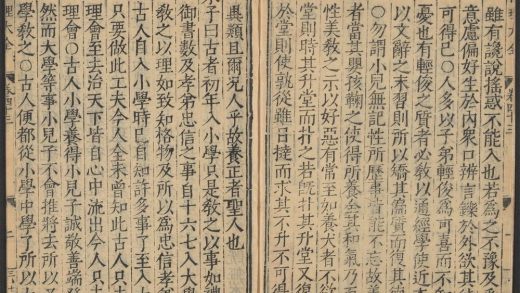 雖有讒說搖惑不能入也若爲之不豫及
意慮偏好生於內衆口辨言鑠於外欲其
可得已○人多以子弟輕俊爲可喜而不
憂也有輕俊之質者必教以通經學使近本
以文辭之末習則所以矯其偏質而復其
○勿謂小兒無記性所歷事皆能不忘故
當其嬰孩鞠之使得所養全其和氣乃
性美教之示以好惡有常至如養犬者不欲
堂則時其升堂而扑之若既扑其升堂又復
於堂則使孰從雖日撻而求其不升不可得
異類且爾況人乎故養正者聖人也
朱子曰古者初年入小學只是教之以事如禮
御書數及孝弟忠信之事自十六七入大學
教之以理如致知格物及所以爲忠信孝
古人自入小學時已自知許多事了至入
只要做此工夫今人全未曾知此古人只
理會至去治天下皆自心中流出今人只去
理會○古人小學養得小兒子誠敬善端發
然而大學等事小兒子不會推將去所以
學教之○古人便都從小學中學了所以大
理大全
卷四十三